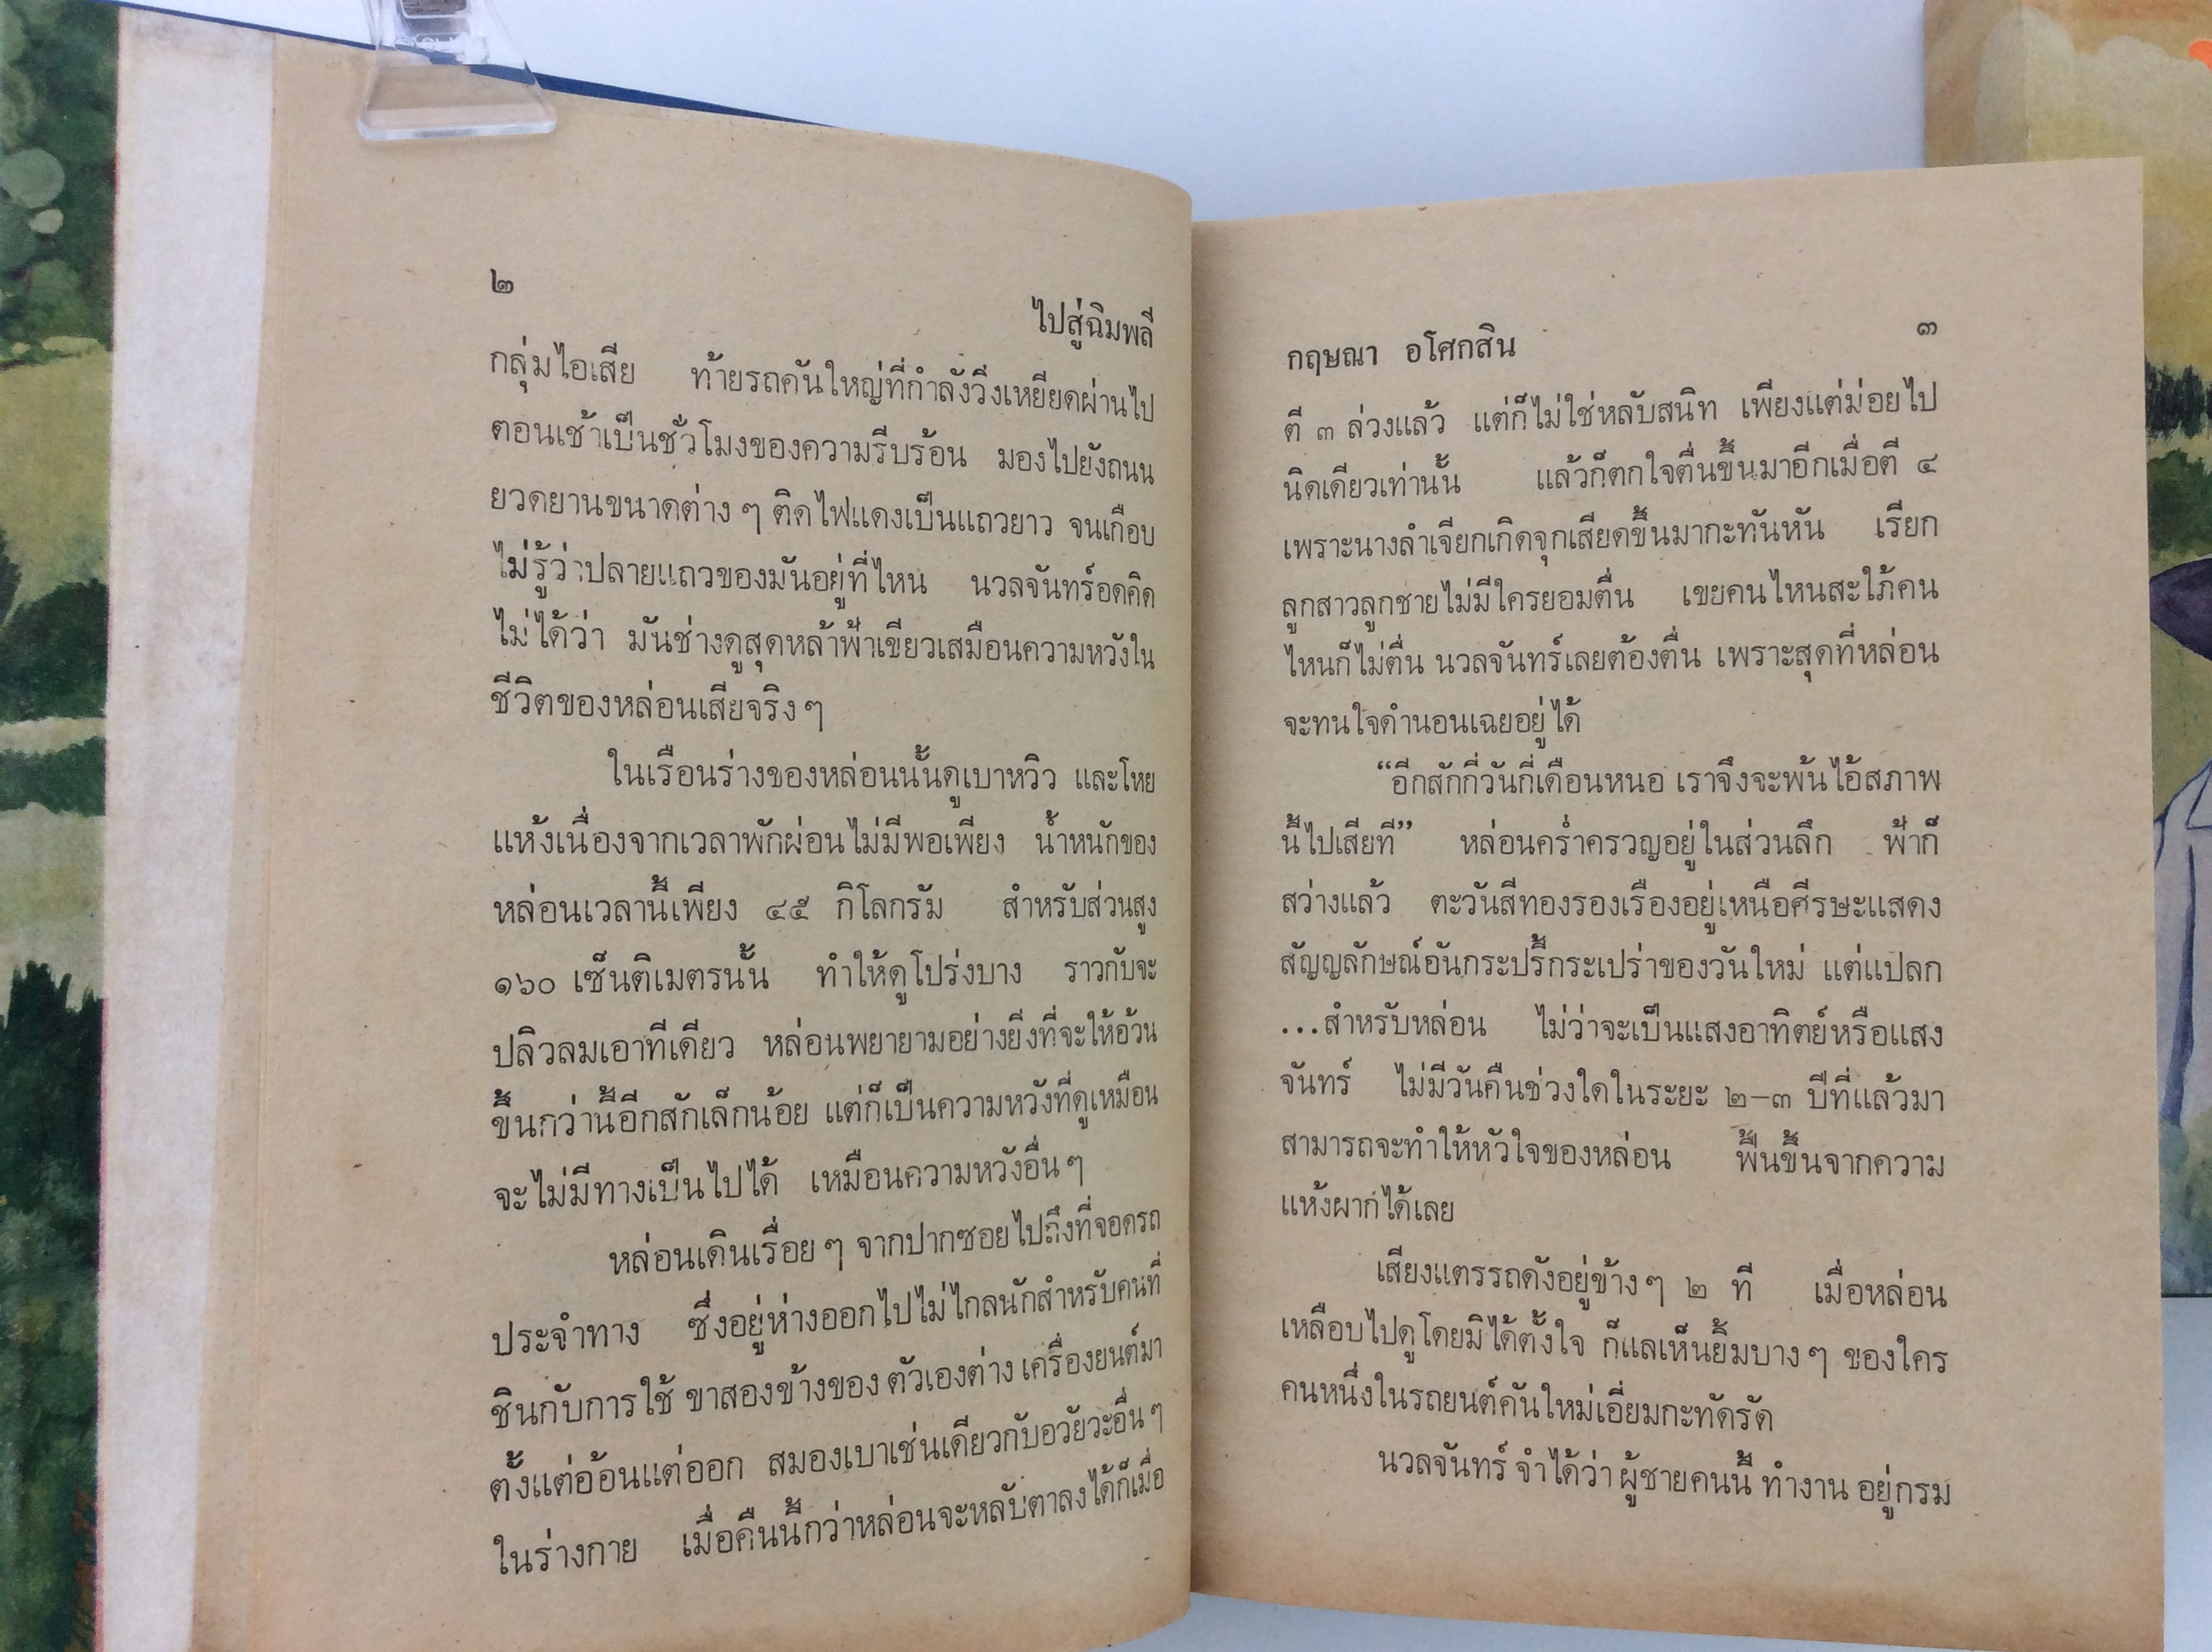 ๒
ไปสู่ฉิมพลี
กลุ่มไอเสีย ท้ายรถคันใหญ่ที่กำลังวิ่งเหยียดผ่านไป
ตอนเช้าเป็นชั่วโมงของความรีบร้อน มองไปยังถนน
ยวดยานขนาดต่าง ๆ ติดไฟแดงเป็นแถวยาว จนเกือบ
ไม่รู้ว่าปลายแถวของมันอยู่ที่ไหน นวลจันทร์อดคิด
ไม่ได้ว่า มันช่างดูสุดหล้าฟ้าเขียวเสมือนความหวังใน
ชีวิตของหล่อนเสียจริง ๆ
ในเรือนร่างของหล่อนนั้นดูเบาหวิว และโหย
แห้งเนื่องจากเวลาพักผ่อนไม่มีพอเพียง น้ำหนักของ
หล่อนเวลานี้เพียง ๔๕ กิโลกรัม สำหรับส่วนสูง
๑๖๐ เซ็นติเมตรนั้น ทำให้ดูโปร่งบาง ราวกับจะ
ปลิวลมเอาทีเดียว หล่อนพยายามอย่างยิ่งที่จะให้อ้วน
ขึ้นกว่านี้อีกสักเล็กน้อย แต่ก็เป็นความหวังที่ดูเหมือน
จะไม่มีทางเป็นไปได้ เหมือนความหวังอื่น ๆ
หล่อนเดินเรื่อย ๆ จากปากซอยไปถึงที่จอดรถ
ประจำทาง ซึ่งอยู่ห่างออกไปไม่ไกลนักสำหรับคนที่
ชินกับการใช้ ขาสองข้างของ ตัวเองต่าง เครื่องยนต์มา
ตั้งแต่อ้อนแต่ออก สมองเบาเช่นเดียวกับอวัยวะอื่น ๆ
ในร่างกาย เมื่อคืนนี้กว่าหล่อนจะหลับตาลงได้ก็เมื่อ
กฤษณา อโศกสิน ๓
ตี ๓ ล่วงแล้ว แต่ก็ไม่ใช่หลับสนิท เพียงแต่ม่อยไป
นิดเดียวเท่านั้น แล้วก็ตกใจตื่นขึ้นมาอีกเมื่อตี ๔
เพราะนางลำเจียกเกิดจุกเสียดขึ้นมากะทันหัน เรียก
ลูกสาวลูกชายไม่มีใครยอมตื่น เขยคนไหนสะใภ้คน
ไหนก็ไม่ตื่น นวลจันทร์เลยต้องตื่น เพราะสุดที่หล่อน
จะทนใจดำนอนเฉยอยู่ได้
“อีกสักกี่วันกี่เดือนหนอ เราจึงจะพ้นไอ้สภาพ
นี้ไปเสียที” หล่อนคร่ำครวญอยู่ในส่วนลึก ฟ้าก็
สว่างแล้ว ตะวันสีทองรองเรืองอยู่เหนือศีรษะแสดง
สัญญลักษณ์อันกระปรี้กระเปร่าของวันใหม่ แต่แปลก
...สำหรับหล่อน ไม่ว่าจะเป็นแสงอาทิตย์หรือแสง
จันทร์ ไม่มีวันคืนช่วงใดในระยะ ๒–๓ ปีที่แล้วมา
สามารถจะทำให้หัวใจของหล่อน ฟื้นขึ้นจากความ
แห้งผากได้เลย
เสียงแตรรถดังอยู่ข้าง ๆ ๒ ที เมื่อหล่อน
เหลือบไปดูโดยมิได้ตั้งใจ ก็แลเห็นยิ้มบาง ๆ ของใคร
คนหนึ่งในรถยนต์คันใหม่เอี่ยมกะทัดรัด
นวลจันทร์ จำได้ว่า ผู้ชายคนนี้ ทำงาน อยู่กรม